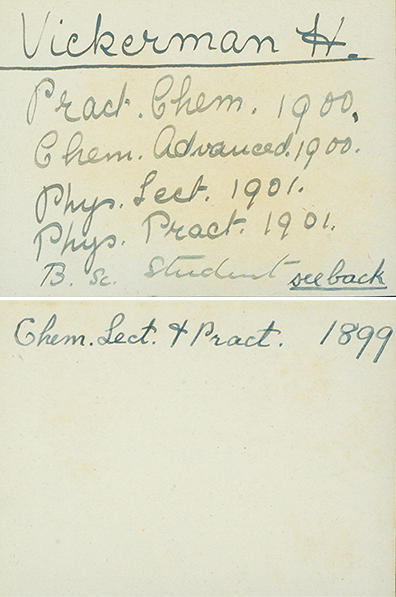 Vickerman H.
Pract. Chem. 1900.
Chem. Advanced. 1900.
Phys. Lect. 1901.
Phys. Pract. 1901.
B. Sc. Student see back
Chem. Lect. & Pract. 1899